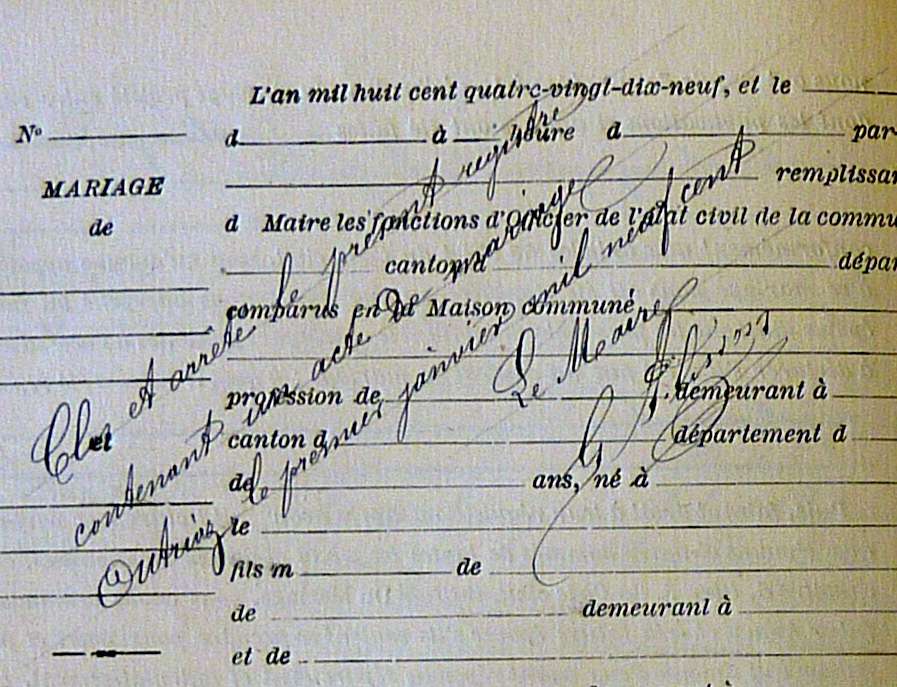 L'an mil huit cent quatre-vingt-dix-neuf, et le
No d à heure d par-
MARIAGE remplissan
de d Maire les fonctions d'Officier de l'état civil de la commu
canton d dépar
comparus en la Maison commune
profession de demeurant à
et canton d département d
de ans, né à
le
fils m de
de demeurant à
et de
Clos et arrêté le présent registre
contenant un acte de mariage
Outriaz le premier janvier mil neuf cent
Le Maire